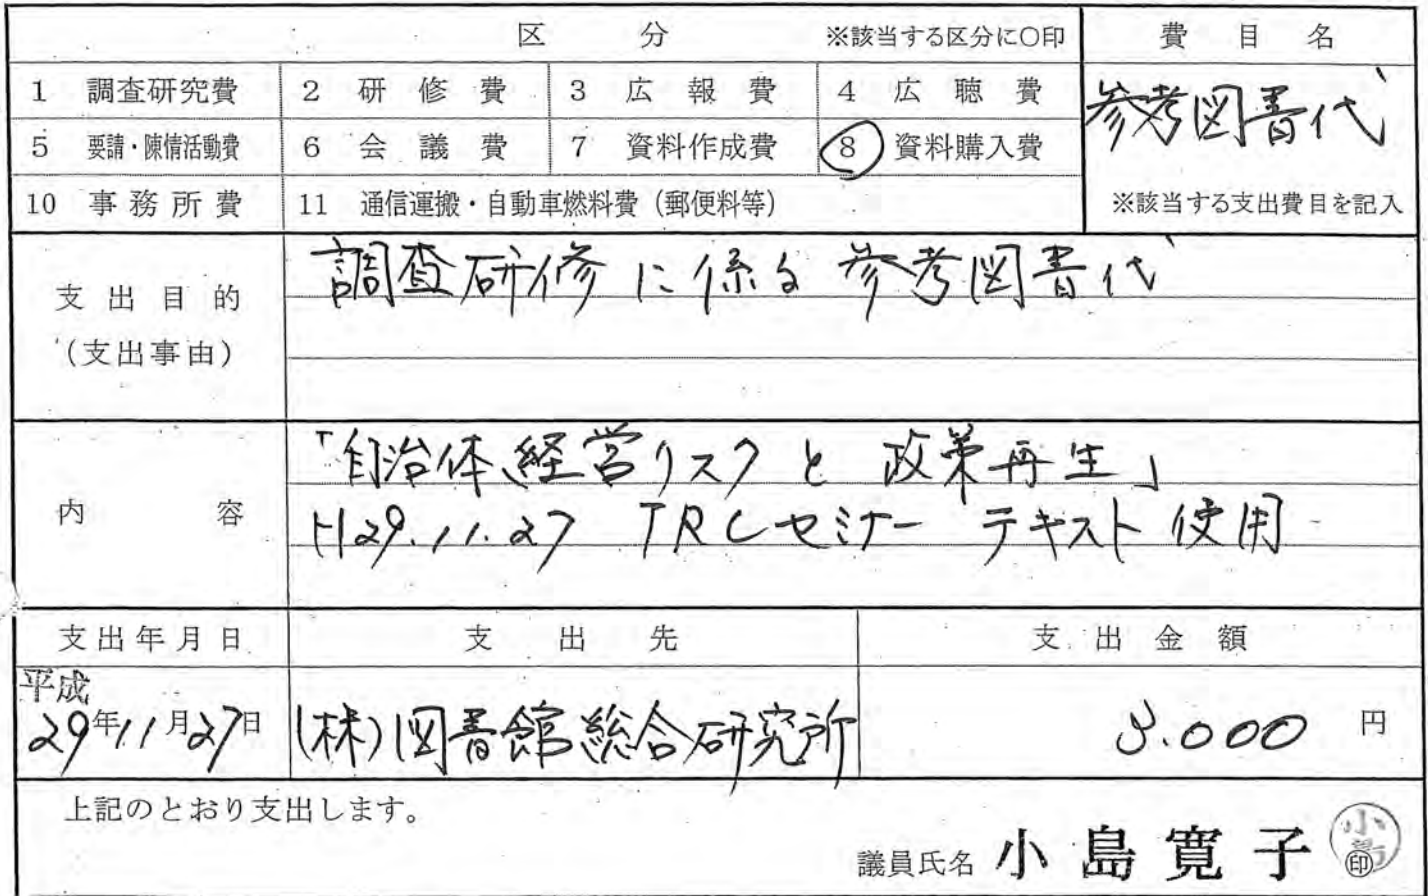 区 分 ※該当する区分に○印 費 目 名
1 調査研究費 2 研 修 費 3 広 報 費 4 広 聴 費
参考図書代
5 要請・陳情活動費 6 会 議 費 7 資料作成費 8 資料購入費
10 事務所費 11 通信運搬・自動車燃料費(郵便料等) ※該当する支出費目を記入
調査研修に係る参考図書代
支出目的
(支出事由)
「自治体経営リスクと政策再生」
内 容
H29.11.27 TRCセミナー テキスト使用
支出年月日 支 出 先 支 出 金 額
平成
29年11月27日 (株)図書館総合研究所 3.000 円
上記のとおり支出します。
議員氏名 小島寛子 小島 印